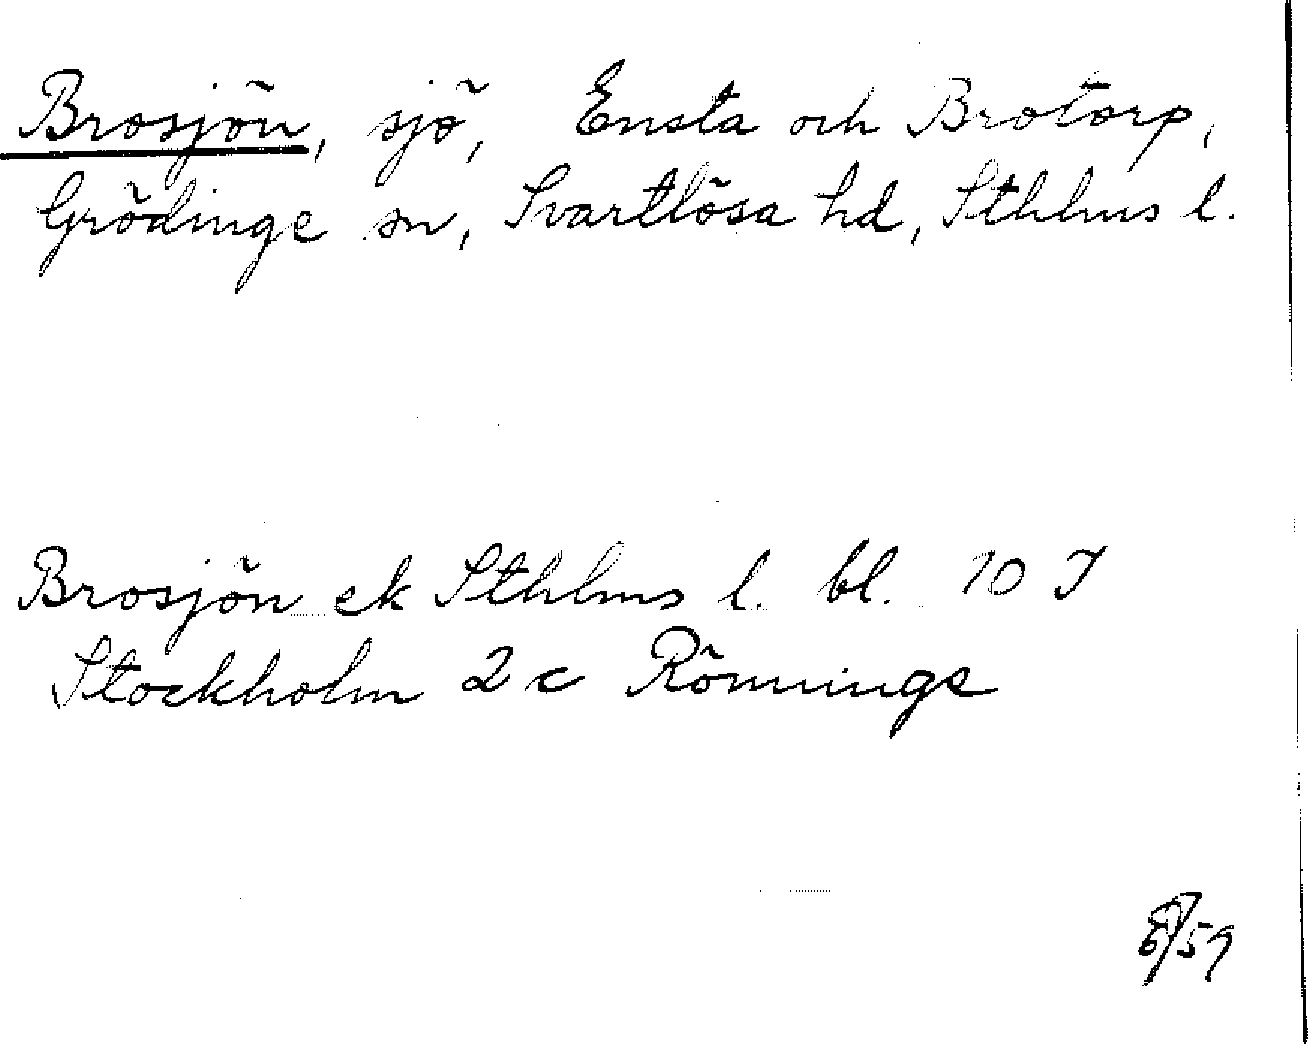 Brosjön, sjö, Ensta och Brotorp,
Grödinge sn, Svartlösa hd, Sthlms l.
Brosjön ek Sthlms l. bl. 10 I
Stockholm 2 c Rönninge